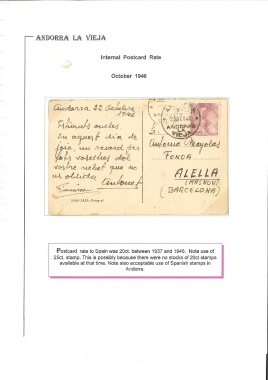 ANDORRA LA VIEJA
Internal Postcard Rate
October 1946
Andorra 22 Octubre
1946
Estimats oncles.
En aquest dia de
joia, un record per
tots vosaltres del
vostre nebot que no
us oblida.
Antonet
ANDORRA
VIEJA
Antonio
FONDA
ALELLA
(MASNOU)
(BARCELONA)
Postcard rate to Spain was 20ct. between 1937 and 1945. Note use of
25ct. stamp. This is possibly because there were no stocks of 20ct stamps
available at that time. Note also acceptable use of Spanish stamps in
Andorra.